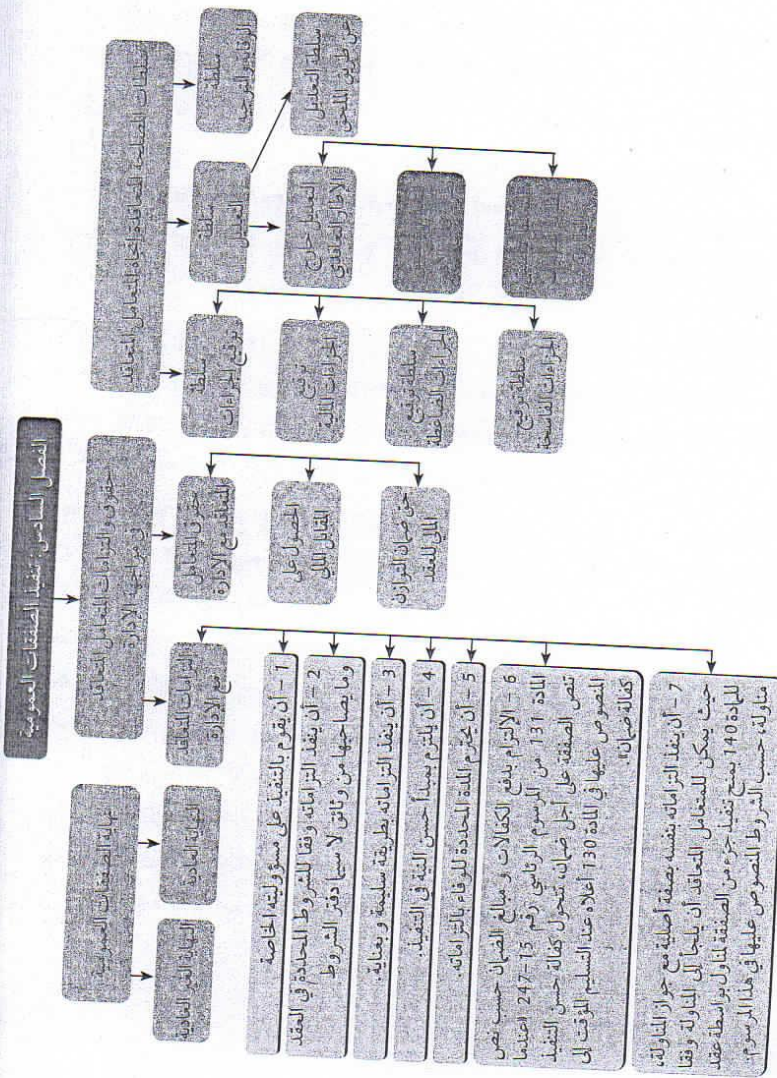 الفصل السادس: تنفيذ الصفقات العمومية
سلطات المصلحة المتعاقدة إتجاه المتعامل المتعاقد
سلطة
الرقابة والتوجيه
سلطة
التعديل
سلطة التعديل
عن طريق الملحق
التعديل خارج
الإطار التعاقدي
سلطة
توقيع الجزاءات
توقيع
الجزاءات المالية
سلطة توقيع
الجزاءات الضاغطة
سلطة توقيع
الجزاءات الفاسخة
حقوق والتزامات المتعامل المتعاقد
في مواجهة الإدارة
حقوق المتعامل
المتعاقد مع الإدارة
الحصول على
المقابل المالي
حق ضمان التوازن
المالي للعقد
التزامات المتعاقد
مع الإدارة
1 - أن يقوم بالتنفيذ على مسؤوليته الخاصة
2 - أن ينفذ التزاماته وفقا للشروط المحددة في العقد
وما يصاحبها من وثائق لا سيما دفتر الشروط
3 - أن ينفذ التزاماته بطريقة سليمة و بعناية.
4 - أن يلتزم بمبدأ حسن النية في التنفيذ.
5 - أن يحترم المدة المحددة للوفاء بالتزاماته.
6 - الإلتزام بدفع الكفالات و مبالغ الضمان حسب نص
المادة 131 من المرسوم الرئاسي رقم 15-247 "عندما
تنص الصفقة على أجل ضمان، تتحول كفالة حسن التنفيذ
المنصوص عليها في المادة 130 أعلاه عند التسليم المؤقت إلى
كفالة ضمان"
7 - أن ينفذ التزاماته بنفسه بصفة أصلية مع جواز المناولة،
حيث يمكن للمتعامل المتعاقد أن يلجأ إلى المناولة وفقا
للمادة 140 بمنح تنفيذ جزء من الصفقة لمناول بواسطة عقد
مناولة، حسب الشروط المنصوص عليها في هذا المرسوم.
نهاية الصفقات العمومية
النهاية العادية
النهاية الغير العادية